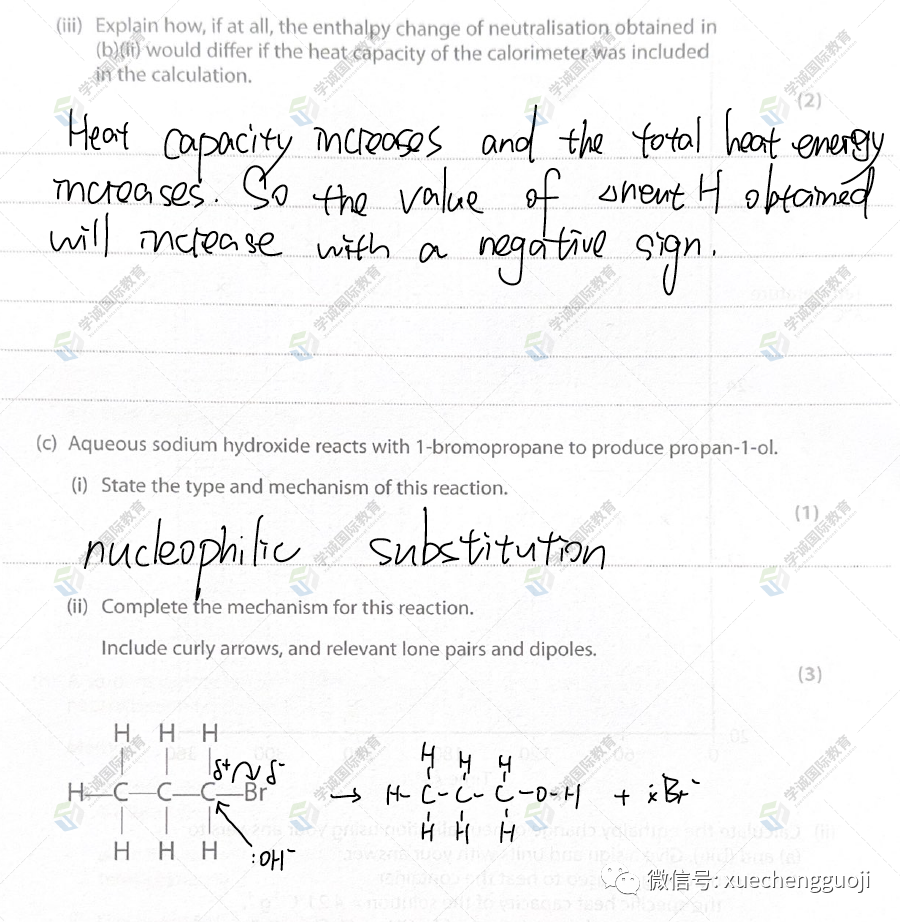 (iii) Explain how, if at all, the enthalpy change of neutralisation obtained in
(b)(ii) would differ if the heat capacity of the calorimeter was included
in the calculation.
(2)
Heat capacity increases and the total heat energy
increases. So the value of ΔneutH obtained
will increase with a negative sign.
(c) Aqueous sodium hydroxide reacts with 1-bromopropane to produce propan-1-ol.
(i) State the type and mechanism of this reaction.
(1)
nucleophilic substitution
(ii) Complete the mechanism for this reaction.
Include curly arrows, and relevant lone pairs and dipoles.
(3)
H H H
δ+ δ-
H—C—C—C—Br
H H H
:OH⁻
→
H H H
H-C-C-C-O-H + ⨰Br⁻
H H H
微信号: xuechengguoji
学诚国际教育